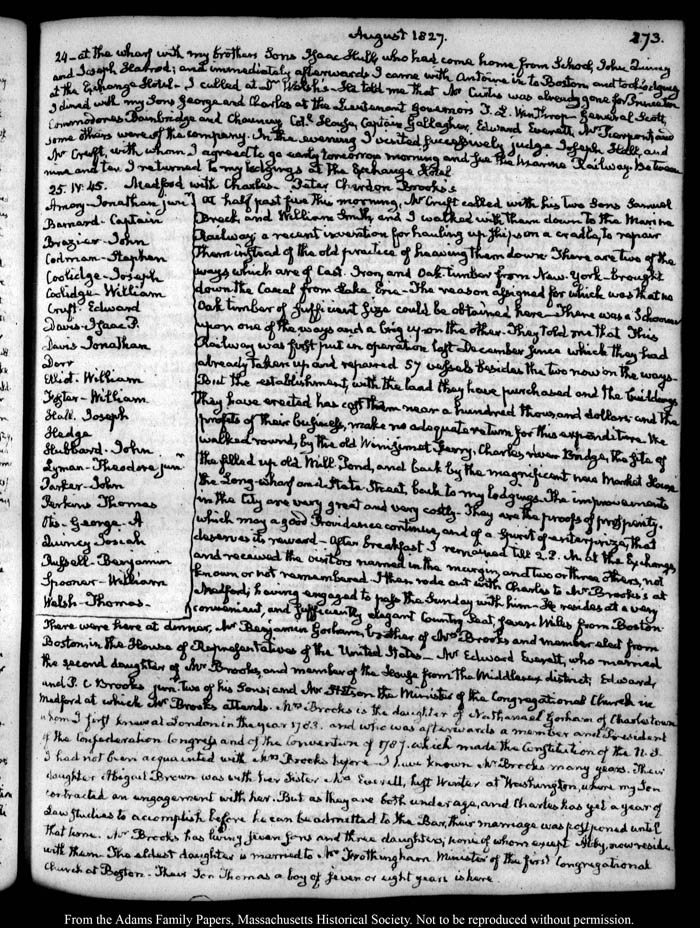 August 1827.
273.
24 - at the wharf with my brothers Sons Isaac Hull, who had come home from School, John Quincy
and Joseph Harrod; and immediately afterwards I came with Antoine in to Boston and took lodgings
at the Exchange Hotel - I called at Dr Welsh's - He told me that Mr Curtis was already gone for Princeton
I dined with my Sons George and Charles at the Lieutenant Governors T. L. Winthrop - General Scott,
Commodores Bainbridge and Chauncey Coll. House, Captain Gallagher, Edward Everett, Mr Pierpont, and
some others were of the company. In the evening I visited successively judge Joseph Hall, and
Mr Cruft, with whom I agreed to go early tomorrow morning and see the Marine Railway. Between
nine and ten I returned to my lodgings at the Exchange Hotel
25. IV: 45. Medford with Charles - Peter Chardon Brooks's
Amory - Jonathan junr
Barnard - Captain
Brazier - John
Codman - Stephen
Coolidge - Joseph
Coolidge - William
Cruft - Edward
Davis - Isaac P.
Davis Jonathan
Dorr
Elliot - William
Foster - William
Hall. Joseph
Hedge
Hubbard - John
Lyman - Theodore junr
Parker - John
Perkins Thomas
Otis - George - A
Quincy Josiah
Russell - Benjamin
Spooner - William
Welsh - Thomas -
At half past five this morning, Mr Cruft called with his two Sons Samuel
Breck, and William Smith, and I walked with them down to the Marine
Railway; a recent invention for hauling up ships on a cradle, to repair
them instead of the old practice of heaving them down. There are two of the
ways which are of Cast. Iron, and Oak timber from New-York - brought
down the Canal from Lake Erie - The reason assigned for which was that no
Oak timber of sufficient size could be obtained here - There was a Schooner
upon one of the ways and a brig upon the other - They told me that This
Railway was first put in operation last December since which they had
already taken up and repaired 57 vessels besides the two now on the ways -
But the establishment, with the land they have purchased and the buildings
they have erected has cost them near a hundred thousand dollars - and the
profits of their business, make no adequate return for this expenditure. We
walked round, by the old Winisimet Ferry, Charles river Bridge, the site of
the filled up old Mill. Pond, and back by the magnificent new Market House
the Long-wharf and State Street, back to my lodgings - The improvements
in the City are very great and very costly - They are the proofs of prosperity.
which may a good Providence continue, and of a Spirit of enterprize, that
deserves its reward - After breakfast I remained till 2 P. M. at the Exchange,
and received the visitors named in the margin, and two or three others, not
known or not remembered. I then rode out with Charles to Mr Brooks's at
Medford; having engaged to pass the Sunday with him - He resides at a very
convenient, and sufficiently elegant Country Seat, seven Miles from Boston
There were here at dinner, Mr Benjamin Gorham, brother of Mrs Brooks and member elect from
Boston, in the House of Representatives of the United States - Mr Edward Everett, who married
the second daughter of Mr Brooks, and member of the House from the Middlesex district; Edward,
and P. C Brooks junr. two of his Sons; and Mr Stetson the Minister of the Congregational Church in
Medford at which Mr Brooks attends. Mrs Brooks is the daughter of Nathanael Gorham of Charlestown
whom I first knew at London in the year 1783. and who was afterwards a member and President
of the Confederation Congress and of the Convention of 1787. which made the Constitution of the U. S.
I had not been acquainted with Mrs Brooks before. I have known Mr Brooks many years. Their
daughter Abigail Brown was with her Sister Mrs Everett, last Winter at Washington, where my Son
contracted an engagement with her. But as they are both under age, and Charles has yet a year of
Law studies to accomplish before he can be admitted to the Bar, their marriage was postponed until
that time. Mr Brooks has living seven sons and three daughters; none of whom except Abby, now reside
with them. The eldest daughter is married to Mr Frothingham Minister of the first Congregational
Church at Boston. Their Son Thomas a boy of seven or eight years is here.
From the Adams Family Papers, Massachusetts Historical Society. Not to be reproduced without permission.